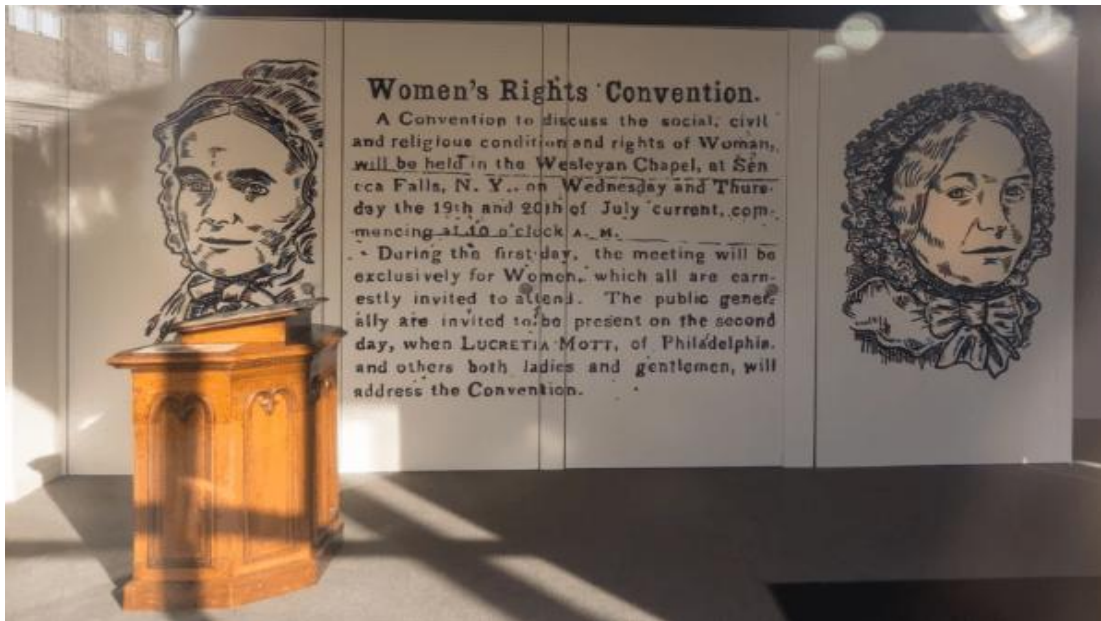 Women's Rights Convention.
A Convention to discuss the social, civil
and religious condition and rights of Woman,
will be held in the Wesleyan Chapel, at Sen
eca Falls, N. Y., on Wednesday and Thurs-
day the 19th and 20th of July current, com-
mencing at 10 o'clock A. M.
During the first day, the meeting will be
exclusively for Women, which all are earn-
estly invited to attend. The public gener-
ally are invited to be present on the second
day, when LUCRETIA MOTT, of Philadelphia.
and others both ladies and gentlemen, will
address the Convention.